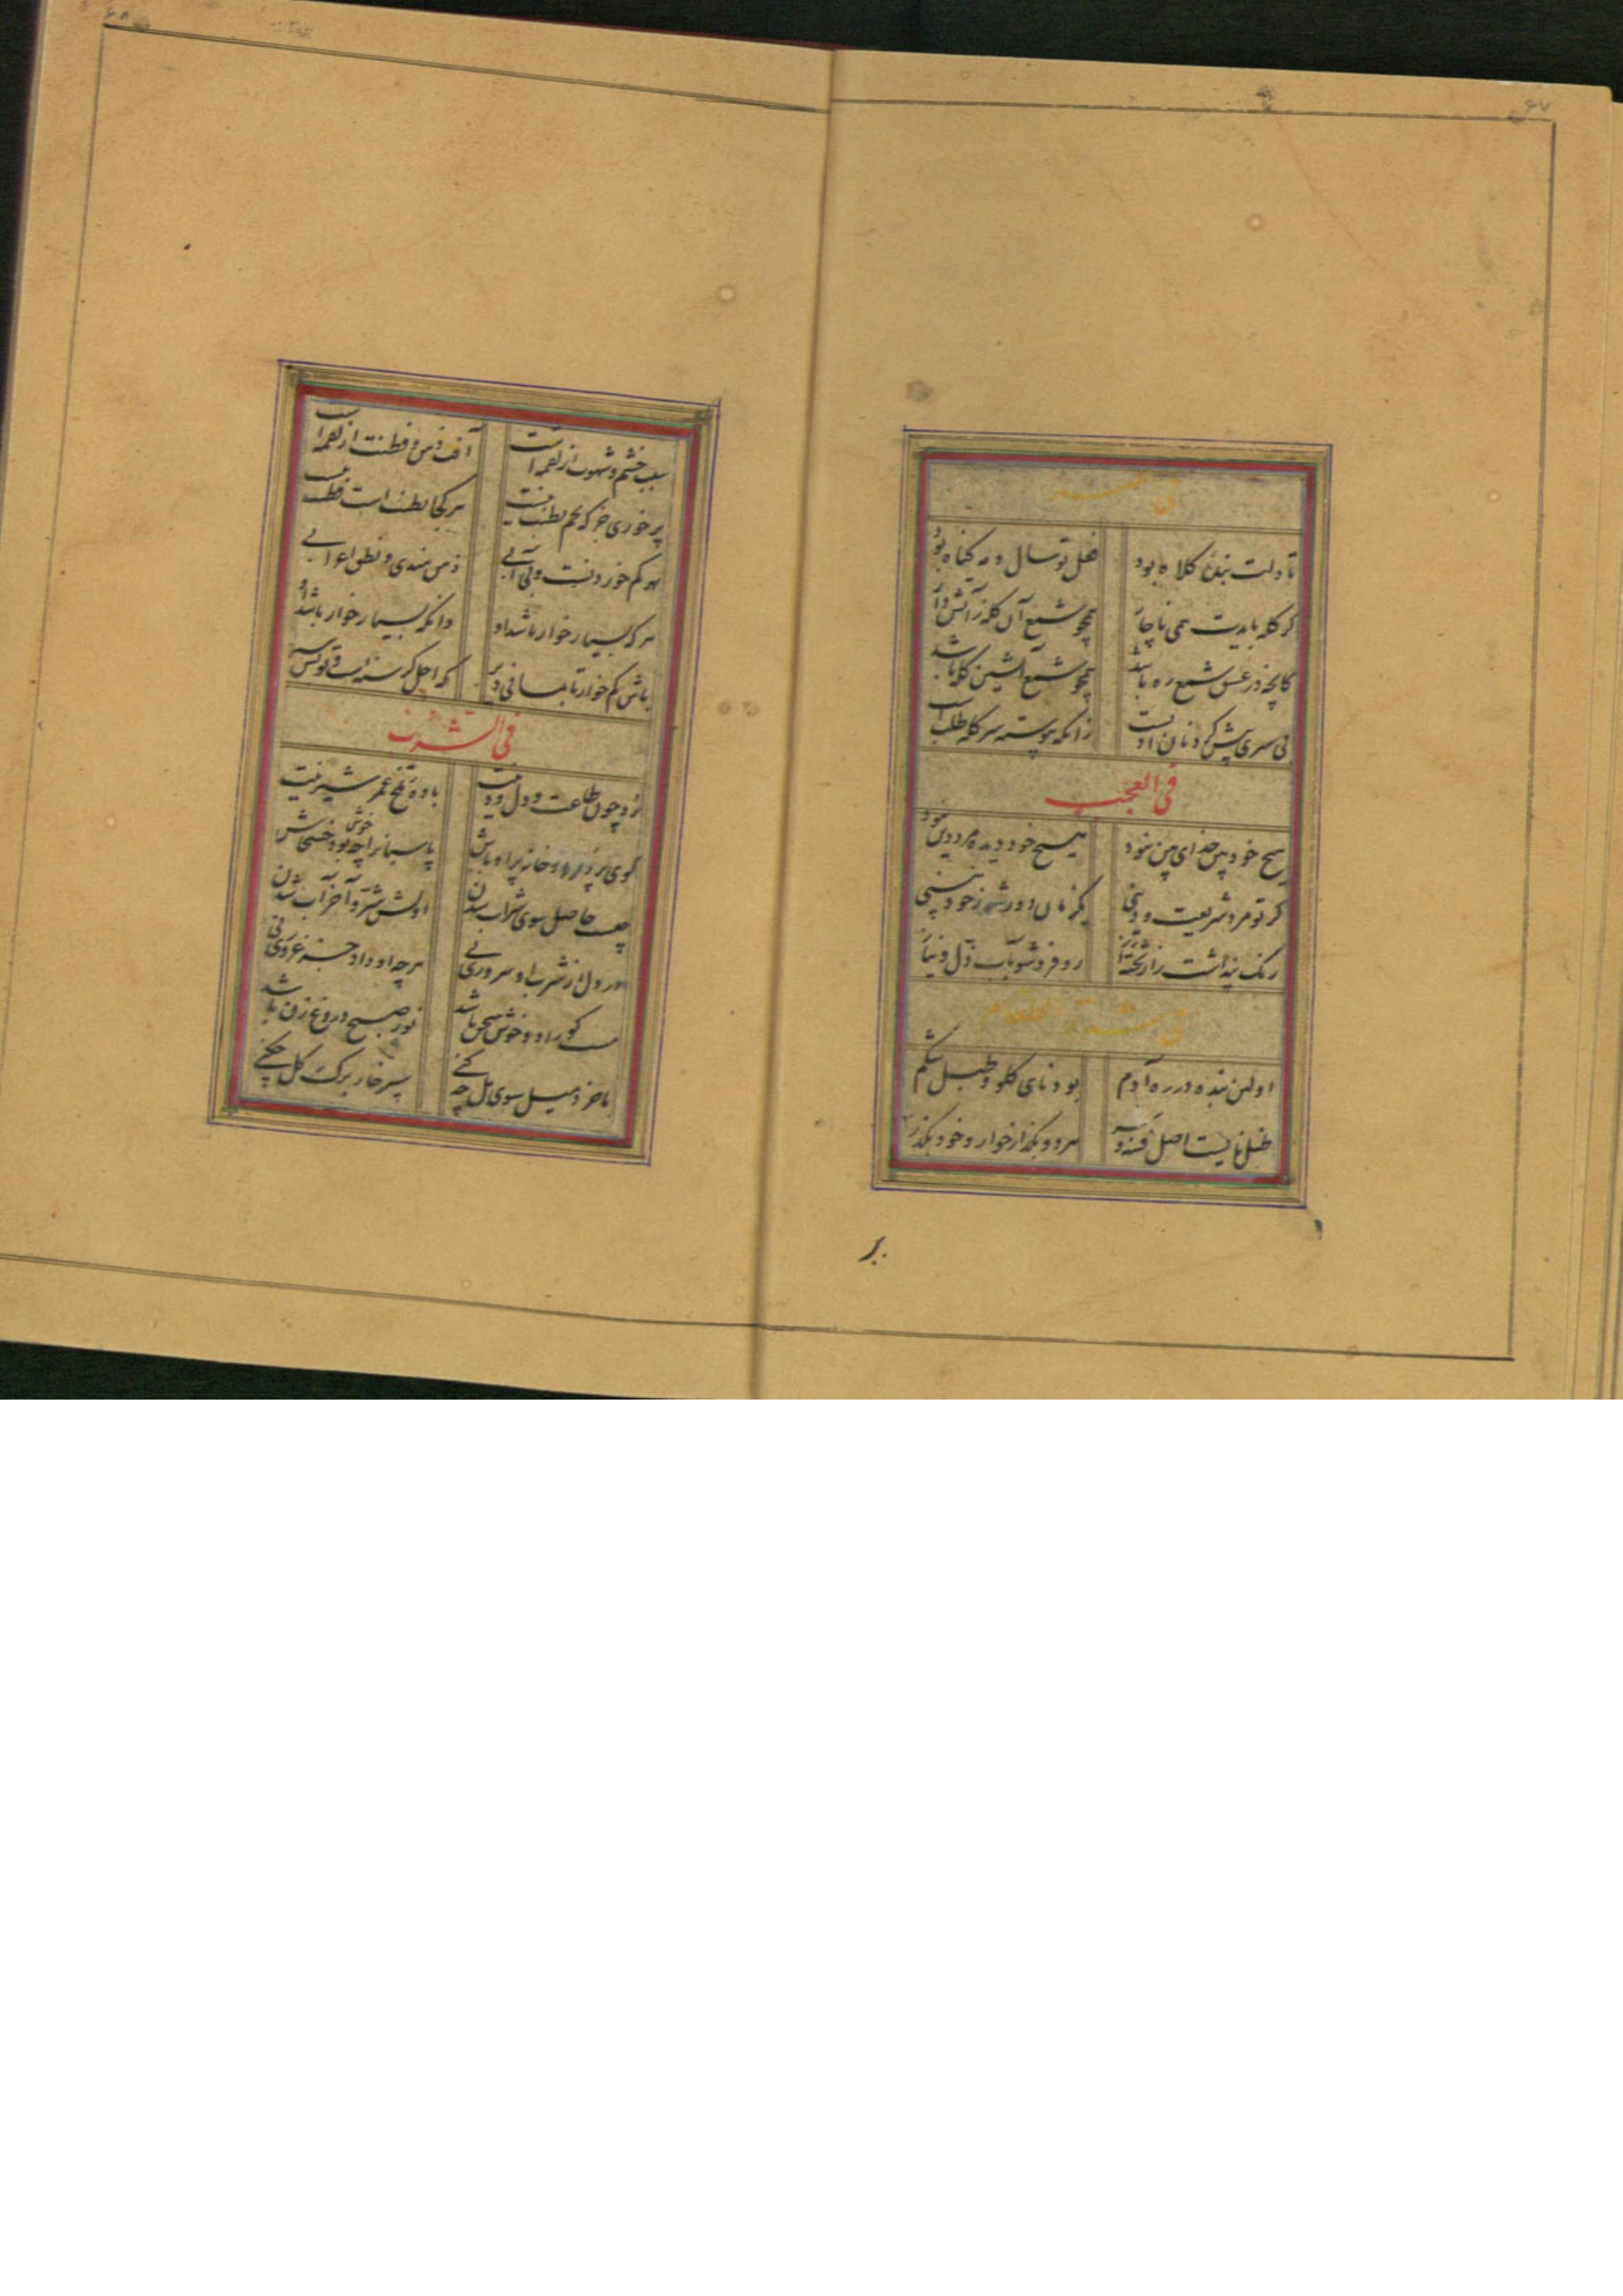 ۶۷
تا دلت بنده کلاه بود
فعل تو سال و مه گناه بود
گر کله بایدت همی ناچار
همچو شمع آن کله ز آتش دار
کانچه در عشق شمع ره باشد
همچو شمع آتشین کله باشد
بی سری پیش گردنان ادبست
زانکه پیوسته سر کله طلبست
فی العجب
هیچ خودبین خدای بین نبود
هیچ خود دیده مرد دین نبود
گر تو مرد شریعت و دینی
یکزمان دور شو ز خودبینی
رنگ پنداشت را
رو فرو شو بآب ذل و نیاز
فی الطعام
اولین بنده در ره آدم
بود نای گلو و طبل شکم
اصل فتنه و
مرد و بگذار خوار و خود بگذر
بر
۶۸
سبب خشم و شهوت از لقمه است
آفت ذهن و فطنت از لقمه است
پرخوری جز که تخم بطنت نیست
هر کجا بطنت است فطنت نیست
بهر کم خوردنست و بی آبی
ذهن هندی و نطق اعرابی
هر که بسیار خوار باشد او
دانکه بسیار خوار باشد او
باش کم خوار تا بمانی دیر
که اجل گرسنه است
فی الشرب
برد چون طاعت و دل و دینت
باده تلخ عمر شیرینت
کوی پر دزد و خانه پر اوباش
پاسبانرا چه خوش بود خشخاش
چیست حاصل سوی شراب شدن
اولش شر و آخر آب شدن
در دل از شرب او سروری نی
هر چه او داد جز غروری نی
مست کو راد و خوش سخن باشد
نور صبح دروغ زن باشد
با خرد میل سوی مل چه کنی
سپر خار برگ گل چه کنی